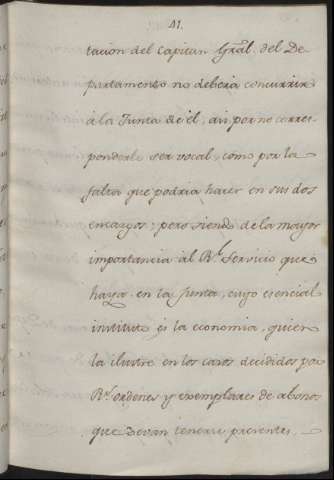 41.
tacion del Capitan Gral. del De-
partamento no deberia concurrir
à la Junta de èl, asi por no corres-
ponderle ser vocal, como por la
falta que podria hacer en sus dos
encargos; pero siendo de la mayor
importancia àl Rl. Servicio que
haya en la Junta, cuyo esencial
instituto es la economia, quien
la ilustre en los casos decididos por
Rs. ordenes y exemplares de abonos
que devan tenerse presentes,